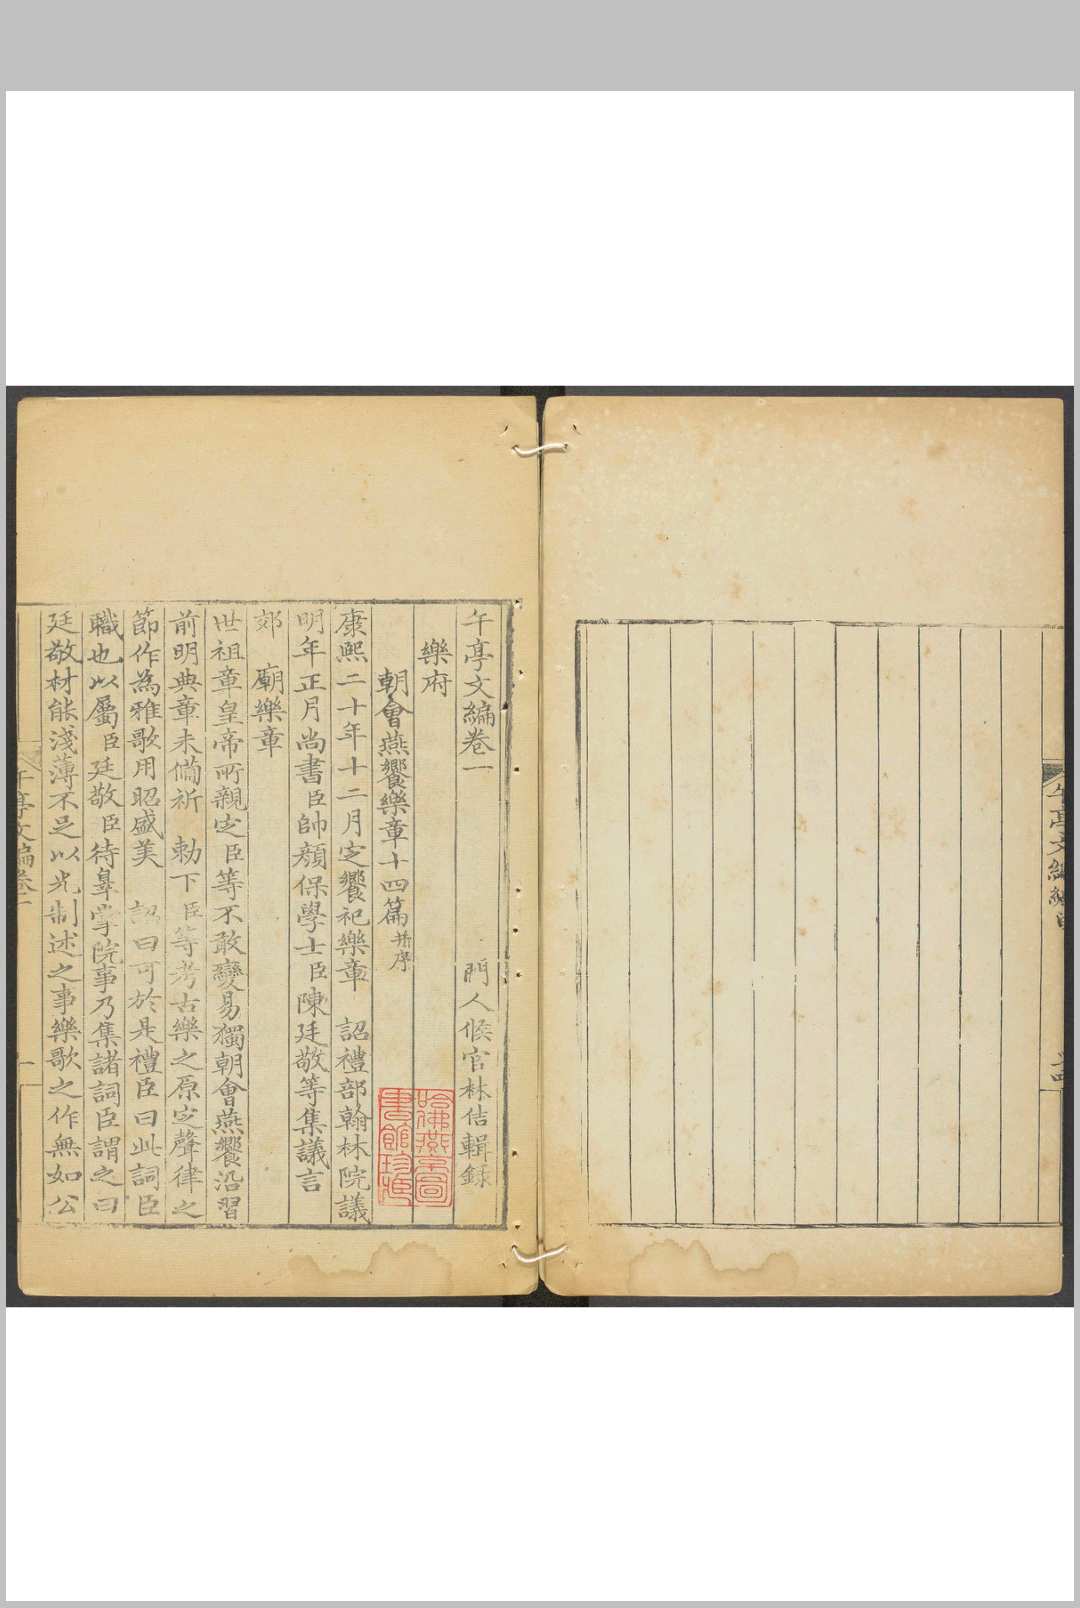 午亭文編卷一
門人候官林佶輯錄
樂府
朝會燕饗樂章十四篇 并序
康熙二十年十二月定饗祀樂章 詔禮部翰林院議
明年正月尚書臣帥顏保學士臣陳廷敬等集議言
郊 廟樂章
世祖章皇帝所親定臣等不敢變易獨朝會燕饗沿習
前明典章未備祈 勅下臣等考古樂之原定聲律之
節作為雅歌用昭盛美 詔曰可於是禮臣曰此詞臣
職也以屬臣廷敬臣待辠掌院事乃集諸詞臣謂之曰
廷敬材能淺薄不足以光制述之事樂歌之作無如公
午亭文編卷一
一
哈佛燕京圖
書館珍藏
午亭文編